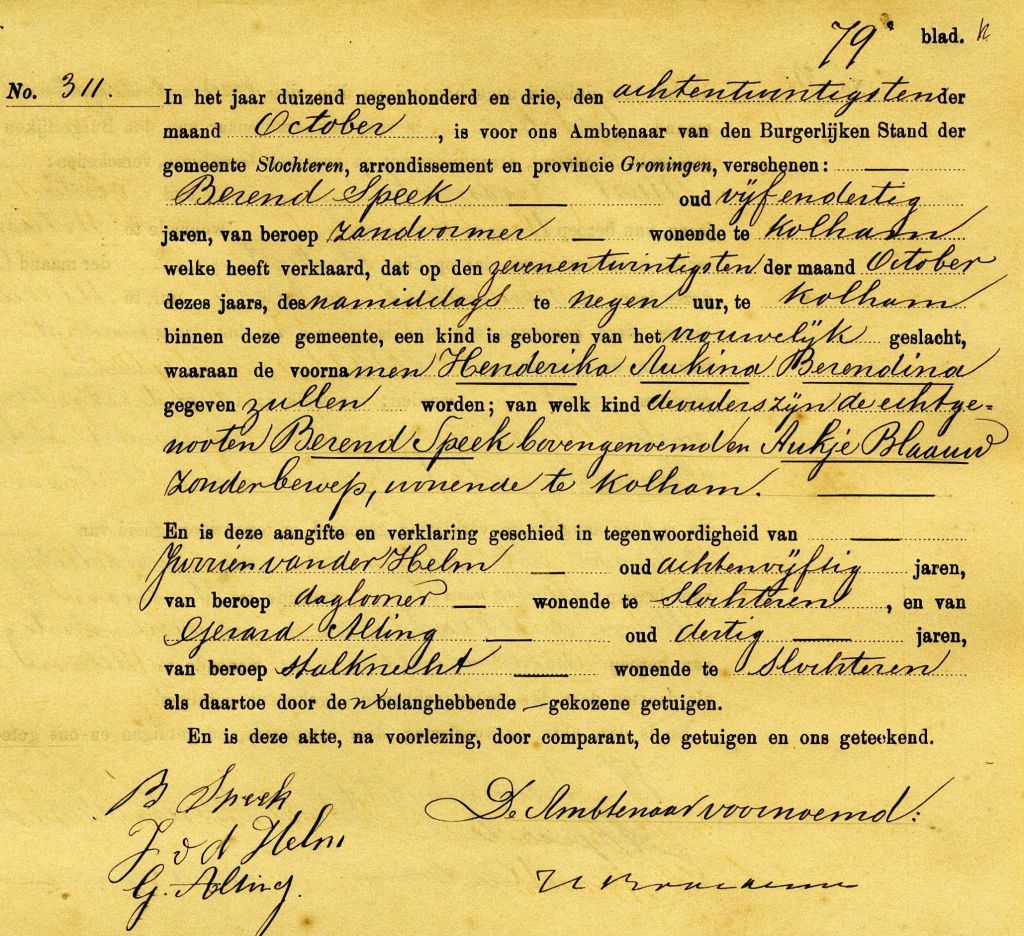 79e blad.
No. 311.
In het jaar duizend negenhonderd en drie, den achtentwintigsten der
maand October, is voor ons Ambtenaar van den Burgerlijken Stand der
gemeente Slochteren, arrondissement en provincie Groningen, verschenen:
Berend Speek oud vijfendertig
jaren, van beroep zandvormer wonende te Kolham
welke heeft verklaard, dat op den zevenentwintigsten der maand October
dezes jaars, des namiddags te negen uur, te Kolham
binnen deze gemeente, een kind is geboren van het vrouwelijk geslacht,
waaraan de voornamen Henderika Aukina Berendina
gegeven zullen worden; van welk kind de ouders zijn de echtge-
nooten Berend Speek bovengenoemd en Aukje Blaauw
zonder beroep, wonende te Kolham.
En is deze aangifte en verklaring geschied in tegenwoordigheid van
Jurrien van der Helm oud achtenvijftig jaren,
van beroep daglooner wonende te Slochteren, en van
Gerard Alting oud dertig jaren,
van beroep stalknecht wonende te Slochteren
als daartoe door den belanghebbende gekozene getuigen.
En is deze akte, na voorlezing, door comparant, de getuigen en ons geteekend.
B Speek
De Ambtenaar voornoemd:
J v d Helm
G. Alting.